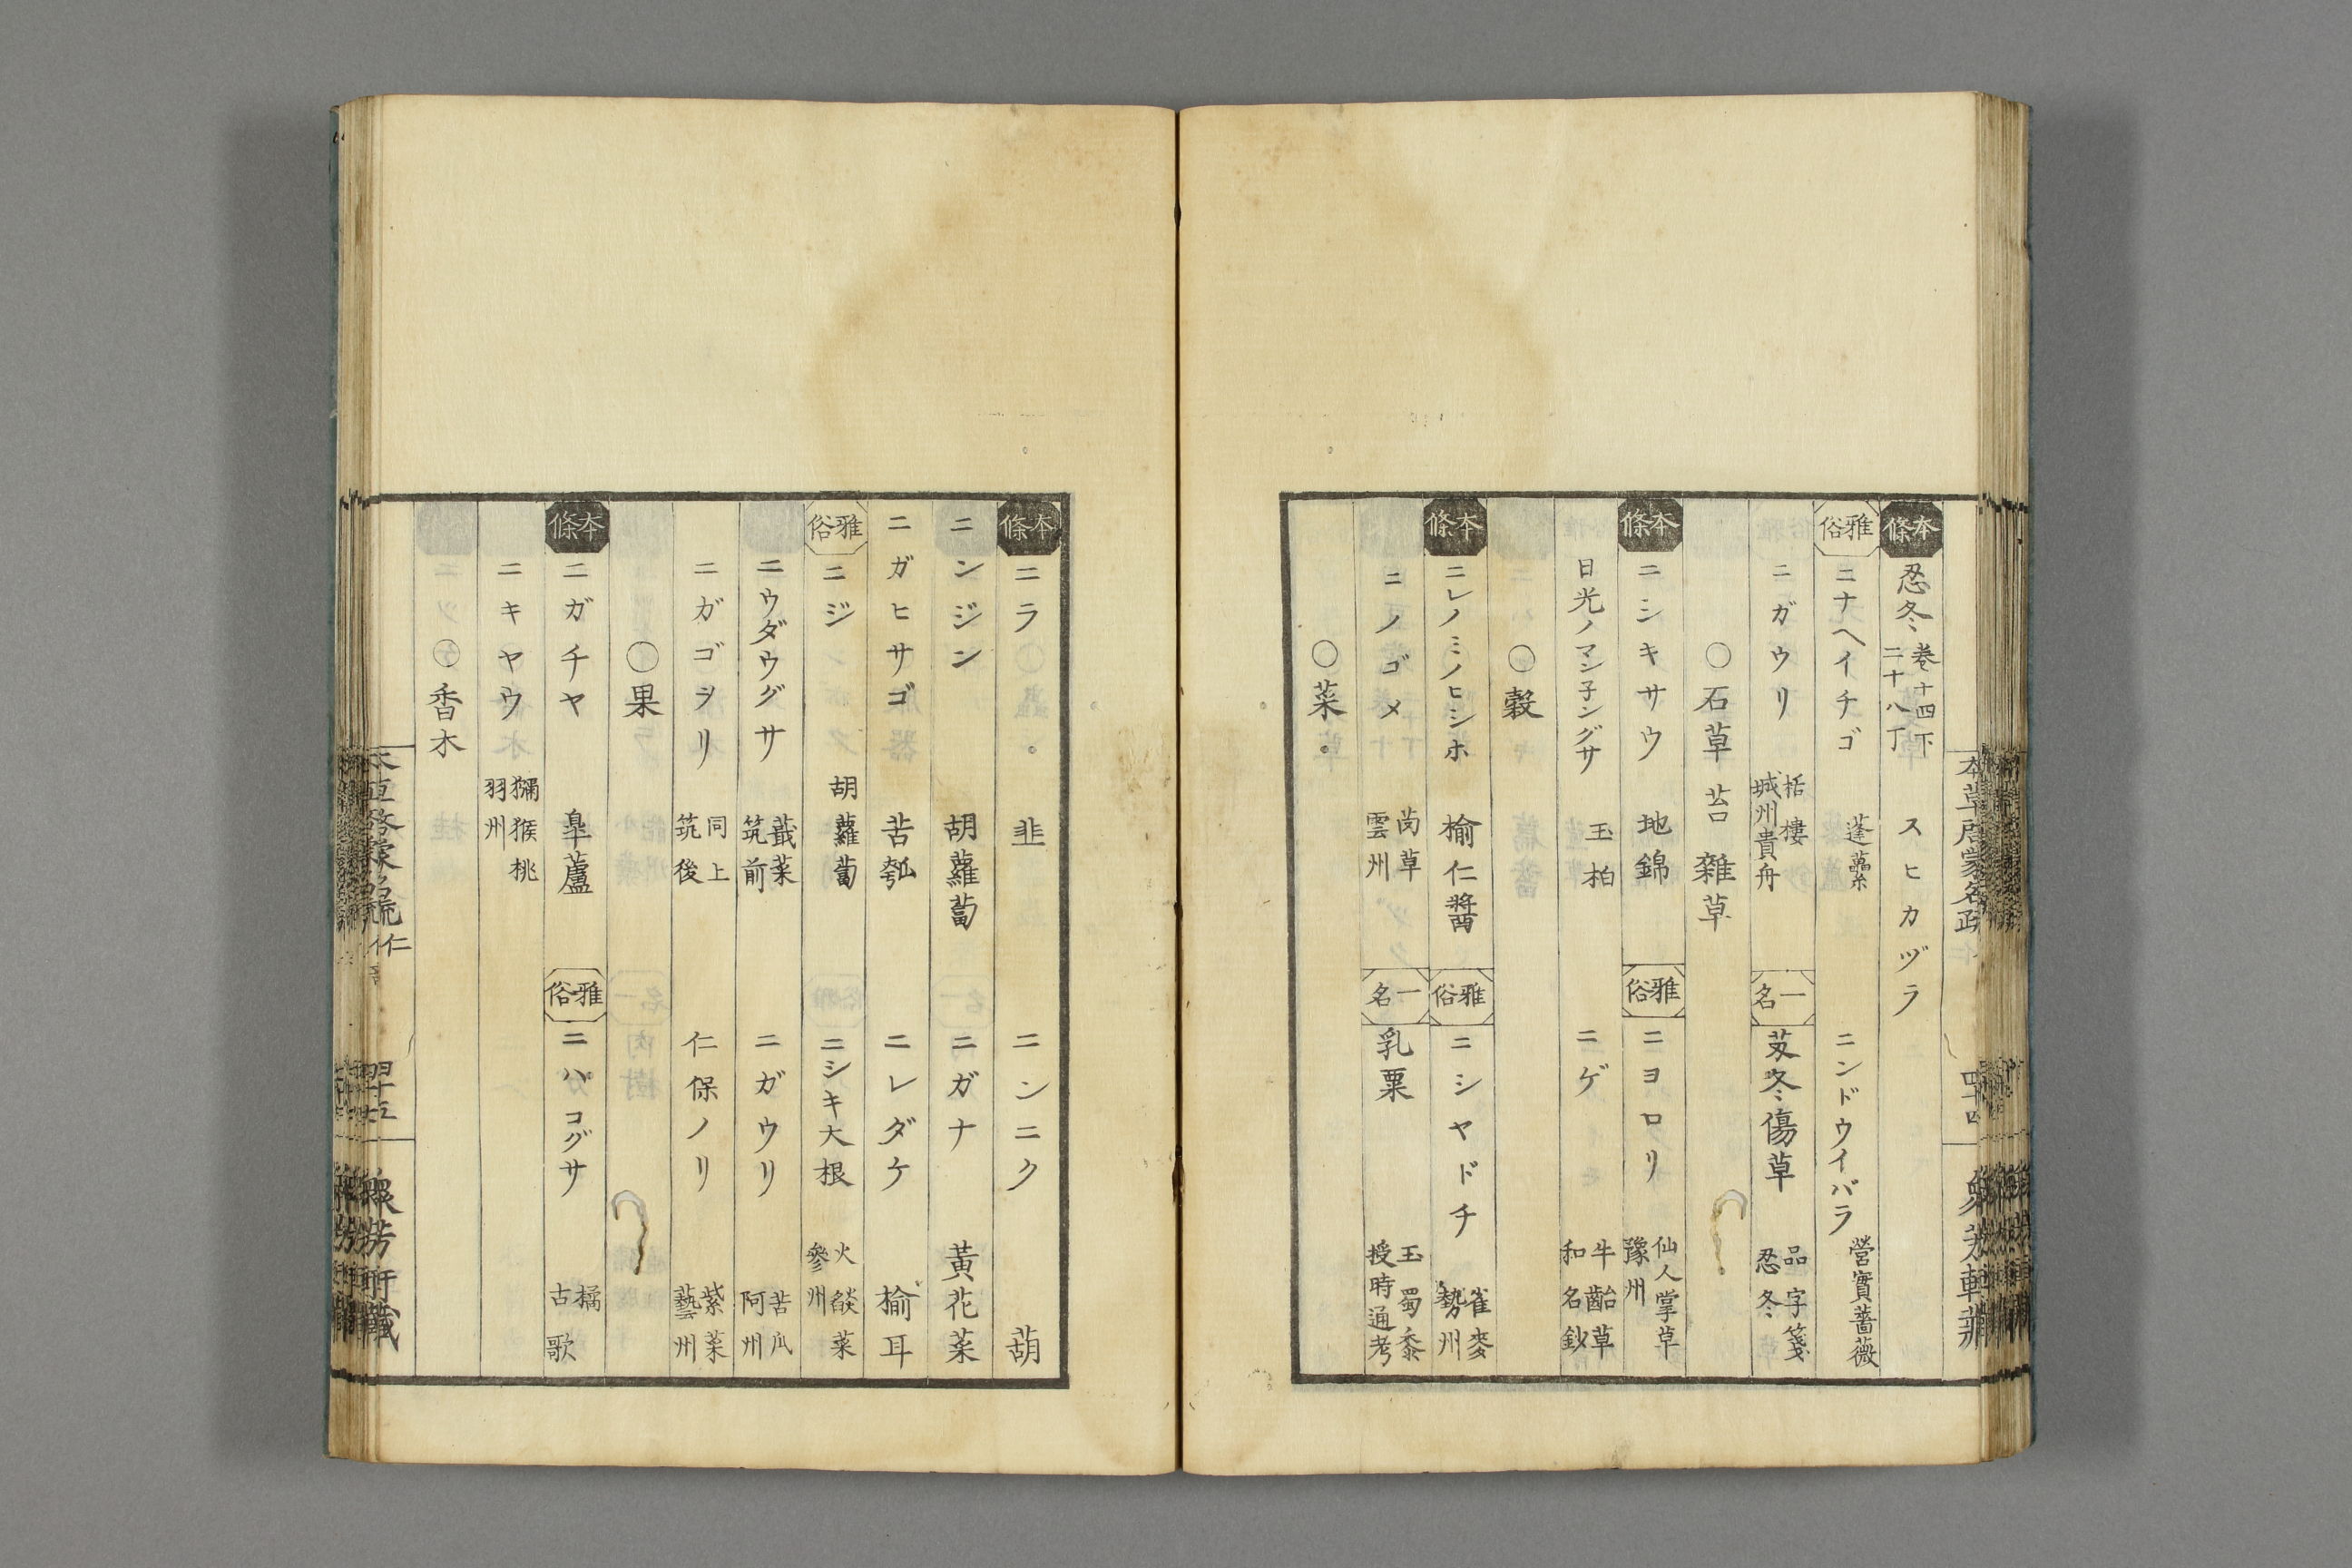 本條 忍冬 卷十四下二十八丁 スヒカヅラ
雅俗 ニナヘイチゴ 蓬虆 ニンドウイバラ 營實薔薇
ニガウリ 栝樓 城州貴舟 一名 芨冬傷草 品字箋 忍冬
○石草 苔 雜草
本條 ニシキサウ 地錦 雅俗 ニヨロリ 仙人掌草 豫州
日光ノマン子ングサ 玉柏 ニゲ 牛齝草 和名鈔
○穀
本條 ニレノミノヒシホ 榆仁醬 雅俗 ニシヤドチ 雀麥 勢州
ニノゴメ 茵草 雲州 一名 乳粟 玉蜀黍 授時通考
○菜
本條 ニラ 韭 ニンニク 葫
ニンジン 胡蘿蔔 ニガナ 黃花菜
ニガヒサゴ 苦瓠 ニレダケ 榆耳
雅俗 ニジ 胡蘿蔔 ニシキ大根 火燄菜 參州
ニウダウグサ 蕺菜 筑前 ニガウリ 苦瓜 阿州
ニガゴヲリ 同上 筑後 仁保ノリ 紫菜 藝州
○果
本條 ニガチヤ 皐蘆 雅俗 ニハコグサ 橘 古歌
ニキヤウ 獼猴桃 羽州
○香木